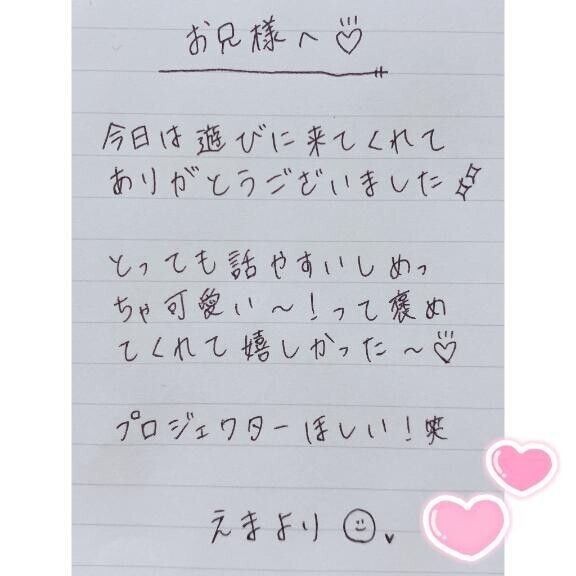 お兄様へ♡
今日は遊びに来てくれて
ありがとうございました
とっても話やすいしめっ
ちゃ可愛い～!って褒め
てくれて嬉しかった～♡
プロジェクターほしい!笑
えまより